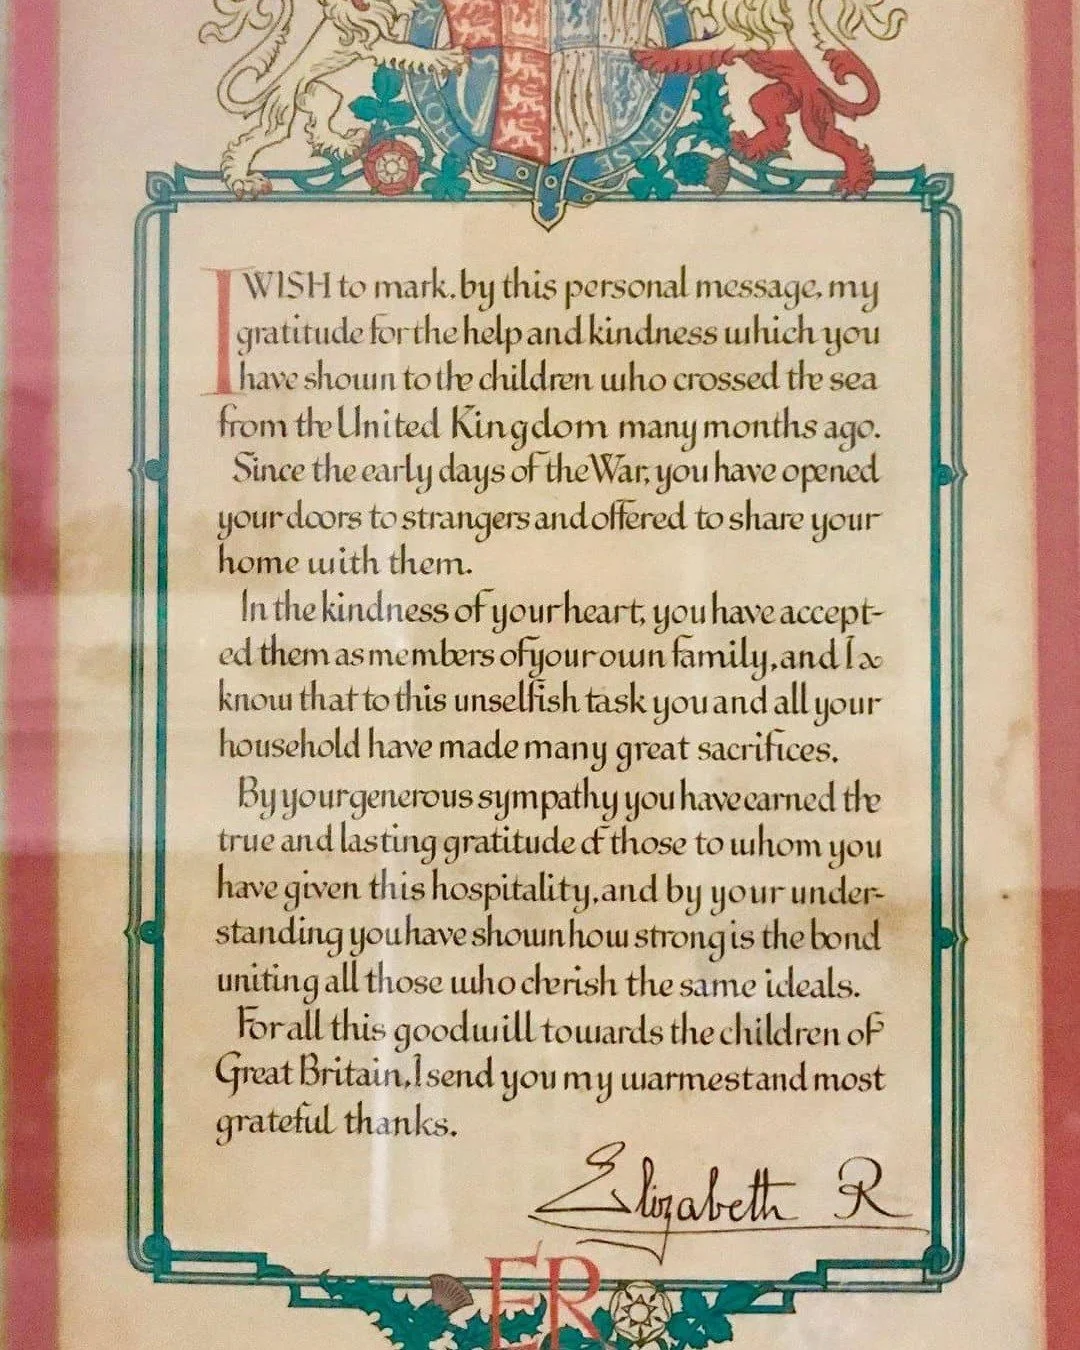 HONI
PENSE
I WISH to mark, by this personal message, my
gratitude for the help and kindness which you
have shown to the children who crossed the sea
from the United Kingdom many months ago.
Since the early days of the War, you have opened
your doors to strangers and offered to share your
home with them.
In the kindness of your heart, you have accept-
ed them as members of your own family, and I
know that to this unselfish task you and all your
household have made many great sacrifices.
By your generous sympathy you have earned the
true and lasting gratitude of those to whom you
have given this hospitality, and by your under-
standing you have shown how strong is the bond
uniting all those who cherish the same ideals.
For all this goodwill towards the children of
Great Britain, I send you my warmest and most
grateful thanks.
Elizabeth R
ER